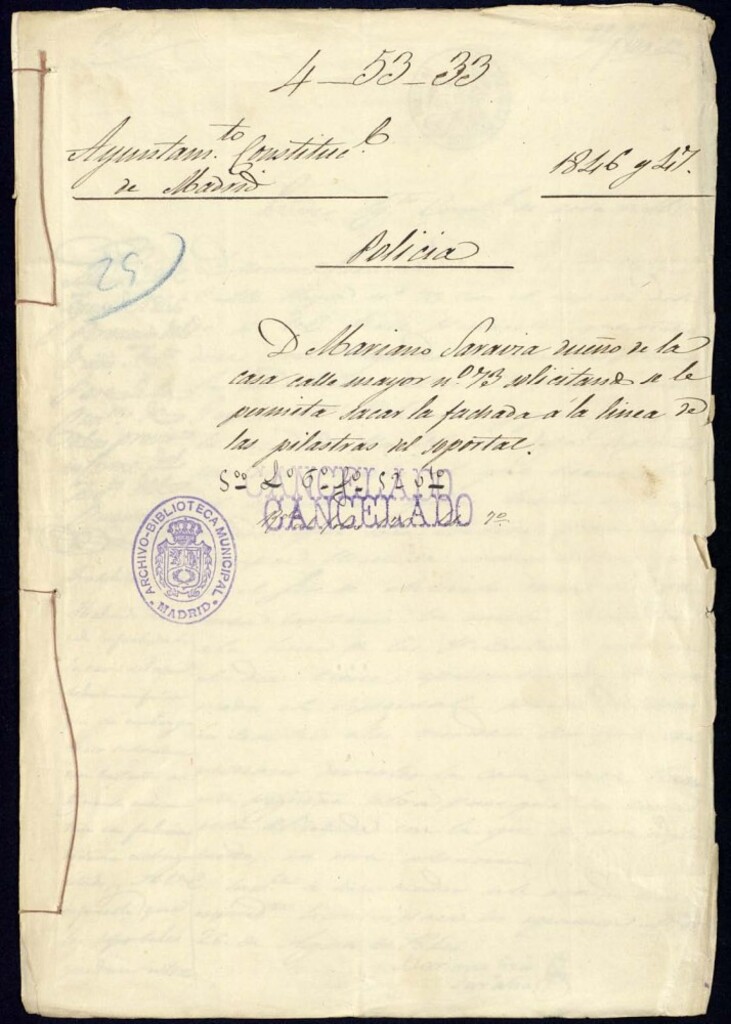 4-53-33
Ayuntam.to Constituc.l
de Madrid
1846 y 47.
Policia
25
D Mariano Saravia dueño de la
casa calle mayor nº. 73 solicitando se le
permita sacar la fachada á la linea de
las pilastras del soportal.
CANCELADO
CANCELADO
ARCHIVO-BIBLIOTECA MUNICIPAL
MADRID